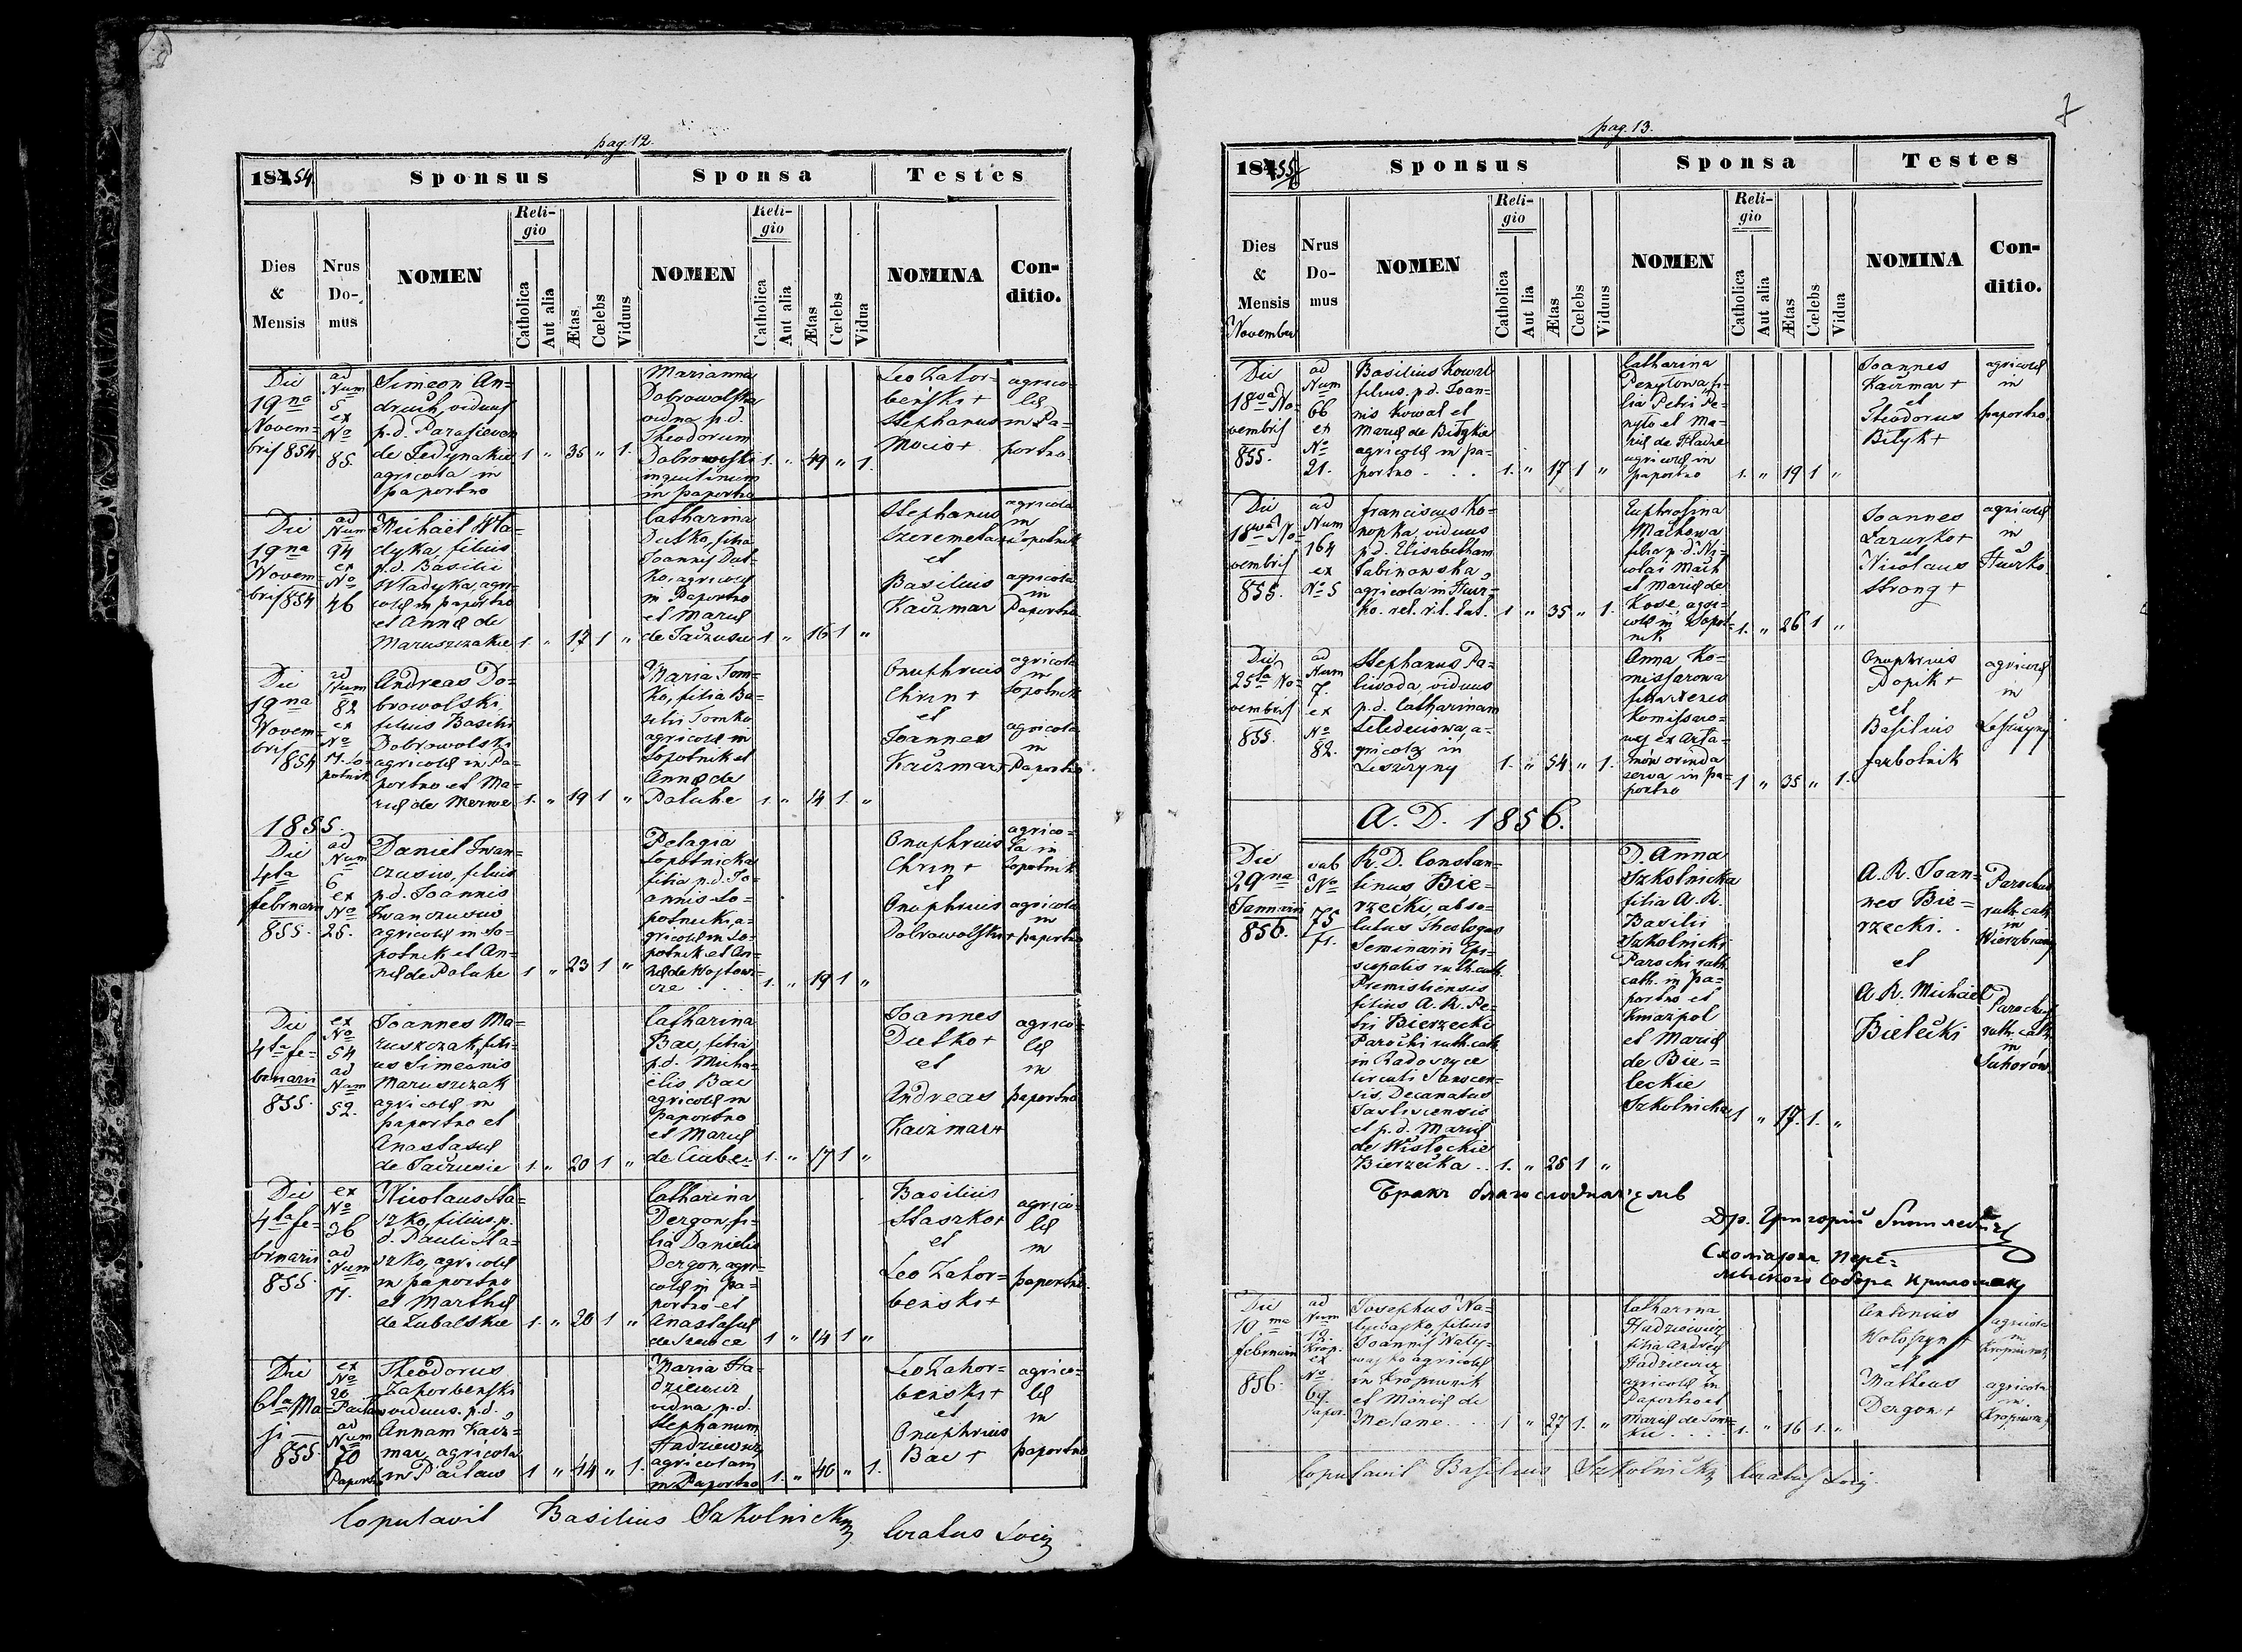 pag. 12.
1854.
Sponsus
Sponsa
Testes
Dies & Mensis
Nrus Do- mus
NOMEN
Reli- gio
Catholica
Aut alia
Ætas
Cœlebs
Viduus
NOMEN
Reli- gio
Catholica
Aut alia
Ætas
Cœlebs
Vidua
NOMINA
Con- ditio.
Die
19na
Novem=
bris 854.
ad
Num
5
ex
No
85.
Simeon An=
druch, viduus
p.d. Parasievam
de Ledynskie
agricola in
paportno
1 " 35 " 1.
Marianna
Dobrowolska
vidua p.d.
Theodorum
Dobrowolski
inquilinum
in paportno
1. " 49 " 1.
Leo Zahor=
benski +
Stephanus
Mocio +
agrico=
læ
in Pa=
portno
Die
19na
Novem=
bris 854
ad
Num
94
ex
No
46
Michael Wła=
dyka, filius
p.d. Basilii
Władyka, agri=
colæ in paportno
et Annæ de
Maruszczakie
1. " 17 1 "
Catharina
Dutko, filia
Joannis Dut=
ko, agricolæ
in Paportno
et Mariæ
de Jaczusie
1 " 16 1 "
Stephanus
Szeremeta
et
Basilius
Kaczmar
agricola
in
Łopotnik
agricola
in
Paportno
Die
19na
Novem=
bris
854
ad
Num
82
ex
No
17. Ło=
potnik
Andreas Do=
browolski,
filius Basilii
Dobrowolski
agricolæ in Pa=
portno et Ma=
riæ de Merwe
1. " 19 1 "
Maria Tom=
ko, filia Ba=
silii Tomko
agricolæ in
Łopotnik et
Annæ de
Paluhe
1. " 14 1. "
Onuphrius
Chrin +
et
Joannes
Kaczmar +
agricola
in
Łopotnik
agricola
in
Paportno
1855.
Die
4ta
februarii
855.
ad
Num
6
ex
No
25.
Daniel Iwan=
czusio, filius
p.d. Joannis
Iwanczusio
agricolæ in Ło=
potnik et An=
næ de Paluhe
1 " 23 1 "
Pelagia
Łopotnicka
filia p.d. Jo=
annis Ło=
potnicki, a=
gricolæ in Ło=
potnik et An=
næ de Wojtowi=
cze
1. " 19 1 "
Onuphrius
Chrin +
et
Onuphrius
Dobrowolski +
agrico=
la in
Łopotnik
agricola
in
paportno
Die
4ta fe=
bruarii
855.
ex
No
54
ad
Num
52.
Joannes Ma=
ruszczak, fili=
us Simeonis
Maruszczak
agricolæ in
paportno et
Anastasiæ
de Jaczusie
1. " 20 1 "
Catharina
Bac, filia
p.d. Micha=
ëlis Bac
agricolæ in
paportno
et Mariæ
de Ciube
1. " 17 1 "
Joannes
Dutko +
et
Andreas
Kaczmar +
agrico=
læ
in
paportno
Die
4ta fe=
bruarii
855.
ex
No
36
ad
Num
17.
Nicolaus Sta=
szko, filius p.
d. Pauli Sta=
szko, agricolæ
in paportno
et Marthæ
de Zubalskie
1. " 20 1 "
Catharina
Dergon, fi=
lia Danielis
Dergon, agri=
colæ in pa=
portno et
Anastasiæ
1 " 14 1 "
Basilius
Staszko +
et
Leo Zahor=
benski +
agrico=
læ
in
paportno.
Die
6ta Ma=
ji
855.
ex
No
20
Pacław
ad
Num
70
Paportno
Theodorus
Zahorbenski
viduus p.d.
Annam Kacz=
mar, agricola
in Pacław
1 " 44 " 1.
Maria Ha=
dziewicz
vidua p.d.
Stephanum
Hadziewicz
agricolam
in Paportno
1. " 40 " 1.
Leo Zahor=
benski +
et
Onuphrius
Bac +
agrico=
læ
in
paportno
Copulavit Basilius Szkolnicki Curatus Loci
7
pag. 13.
1855/6
Sponsus
Sponsa
Testes
Dies & Mensis
November
Nrus Do- mus
NOMEN
Reli- gio
Catholica
Aut lia
Ætas
Cœlebs
Viduus
NOMEN
Reli- gio
Catholica
Aut alia
Ætas
Cœlebs
Vidua
NOMINA
Con- ditio.
Die
18va No=
vembris
855.
ad
Num
66
ex
No
21.
Basilius Kowal
filius p.d. Joan=
nis Kowal et
Mariæ de Biłykie
agricolæ in pa=
portno
1. " 17 1 "
Catharina
Penylowa, fi=
lia Petri Pe=
nylo et Ma=
riæ de Hadze
agricolæ in
paportno
1. " 19 1 "
Joannes
Kaczmar +
et
Theodorus
Biłyk +
agricolæ
in
paportno.
Die
18va No=
vembris
855.
ad
Num
164
ex
No 5
Franciscus Ko=
nopka, viduus
p.d. Elisabetham
Sabinowska,
agricola in Huwi=
ko. rel. rit. Lat.
1 " 35 " 1.
Euphrosina
Mackowa
filia p.d. Ni=
colai Mach
et Mariæ de
Kose, agri=
colæ in Łopot=
nik
1. " 26 1 "
Joannes
Łazurko +
et
Nicolaus
Strong +
agricolæ
in
Die
25ta No=
vembris
855.
ad
Num
7.
ex
No
82.
Stephanus Pa=
liwoda, viduus
p.d. Catharinam
a=
gricola in
Leszczyny
1. " 54 " 1.
Anna Ko=
missarowa
filia Xenis
Komissaro=
wej ex Arta=
mów oriunda
serva in pa=
portno
1 " 35 " 1.
Onuphrius
Popik +
et
Basilius
Farbotnik
agricolæ
in
Leszczyny
A. D. 1856.
Die
29na
Januarii
856.
sub
No
75
Fr.
R. D. Constan=
tinus Bie=
rzecki, abso=
lutus Theologus
Seminarii Epi=
scopalis ruth. cath.
Premisliensis
filius A. R. Pe=
tri Bierzecki
Parochi ruth. cath.
in Radoszyce
circuli Sanocen=
sis, Decanatus
Jasliscensis
et p.d. Mariæ
de Wisłockie
Bierzecka
1. " 25 1 "
D. Anna
Szkolnicka
filia A. R.
Basilii
Szkolnicki
Parochi ruth.
cath. in pa=
portno et
Kniazpol
et Mariæ
de Bie=
leckie
Szkolnicka
1 " 17. 1. "
A. R. Joan=
nes Bie=
rzecki.
et
A. R. Michael
Bielecki
Parochus
ruth. cath.
in
Parochus
ruth. cath.
in
Suhorów
Бракъ
Др. Григорій
Схоластъ Пере=
мыского Собора Крилошан
Die
10ma
februarii
856.
ad
Num
12.
Krop.
ex
No
69.
Papor.
Josephus Na=
lywajko, filius
Joannis Naly=
wajko agricolæ
in Kropiwnik
et Mariæ de
Melane
1 " 27 1. "
Catharina
Hadziewicz
filia Andreæ
Hadziewicz
agricolæ in
Paportno et
Mariæ de Tom=
kie
1. " 16 1. "
Antonius
Wołoszyn +
et
Matheus
Dergon +
agricola
in
Kropiwnik
agricola
in
Kropiwnik
Copulavit Basilius Szkolnicki Curatus Loci.